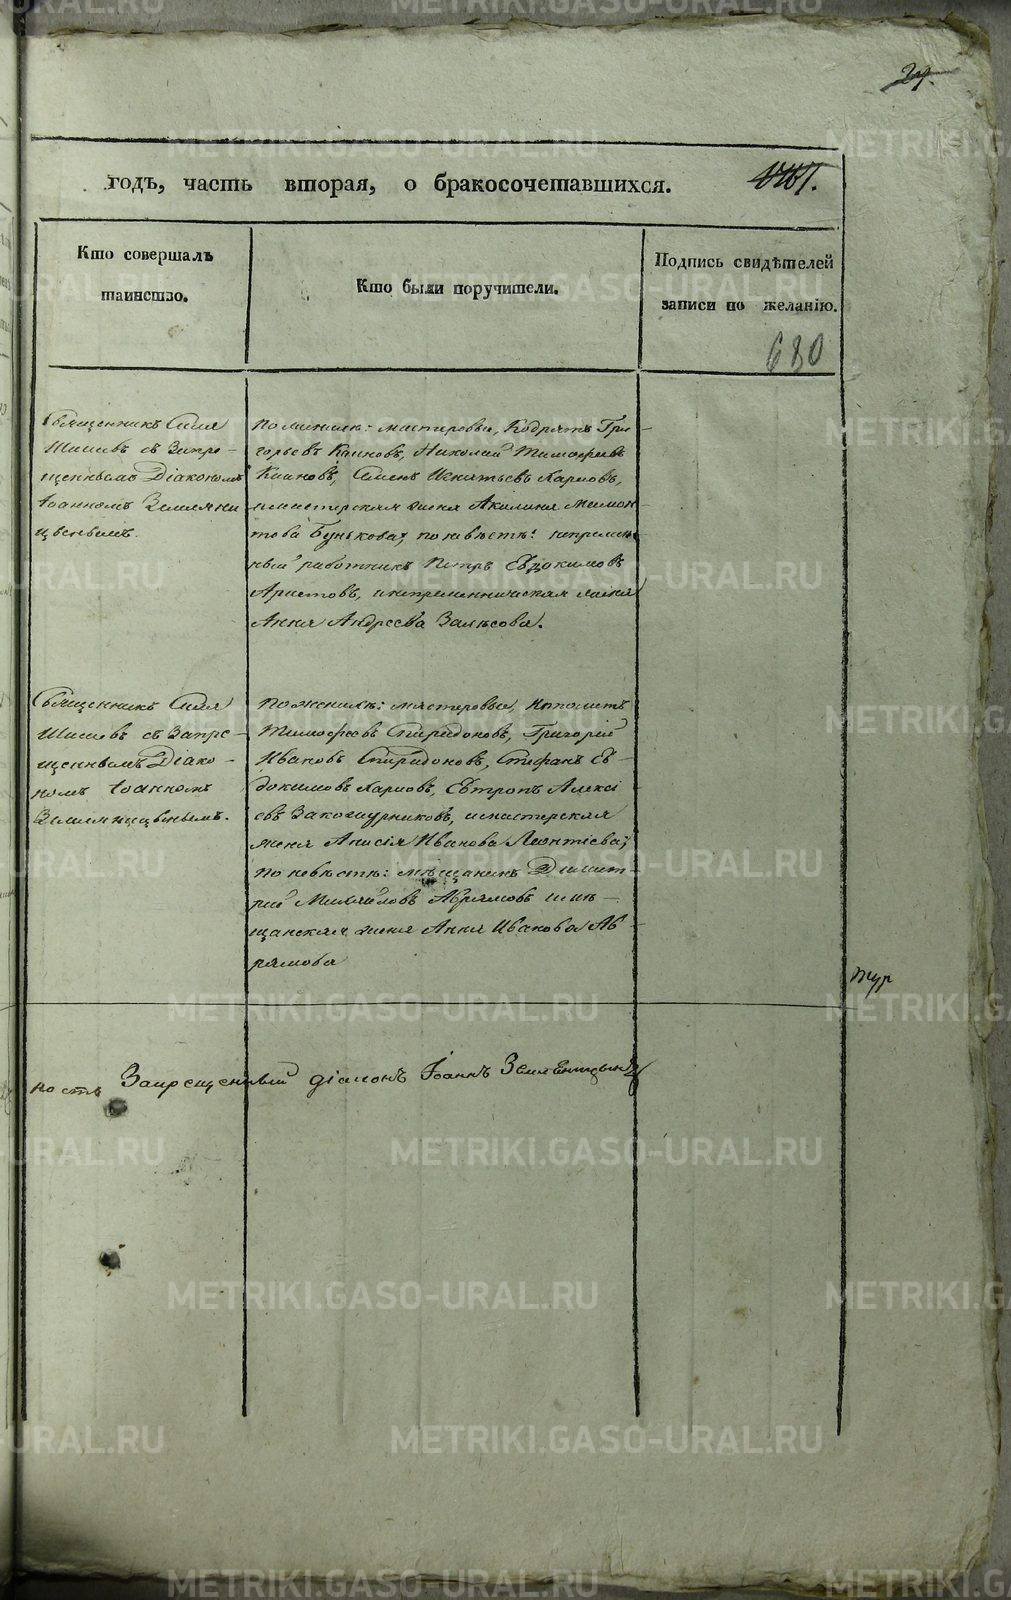 годъ, часть вторая, о бракосочетавшихся.
Кто совершалъ
таинство.
Кто были поручители.
Подпись свидѣтелей
записи по желанію.
680
Священникъ Силя
Шишевъ съ Запре-
щеннымъ Діакономъ
Іоанномъ Земляни
цынымъ.
По женихѣ: мастеровые, Кодратъ Гри-
горьевъ Каиновъ, Николай Тимофеевъ
Каиновъ, Семенъ Игнатьевъ Карповъ,
и мастерская жена Акилина Мамон-
това Бунькова; по невѣстѣ: непремѣн-
ный работникъ Петръ Евдокимовъ
Аристовъ, и непременническая жена
Анна Андреева Залѣсова.
Священникъ Силя
Шишевъ съ Запре-
щеннымъ Діако-
номъ Іоанномъ
Земляницынымъ.
По женихѣ: мастеровые, Ипполитъ
Тимофеевъ Спиридоновъ, Григорій
Ивановъ Спиридоновъ, Стефанъ Ев-
докимовъ Карповъ, Евтропъ Алексі-
евъ и мастерская
жена Анисія Иванова Леонтіева;
по невѣстѣ: мѣщанинъ Димит-
рій Михайловъ Аврамовъ и мѣ-
щанская жена Анна Иванова Ав-
рамова
ность Запрещенный діаконъ Іоаннъ Земляницынъ
METRIKI.GASO-URAL.RU